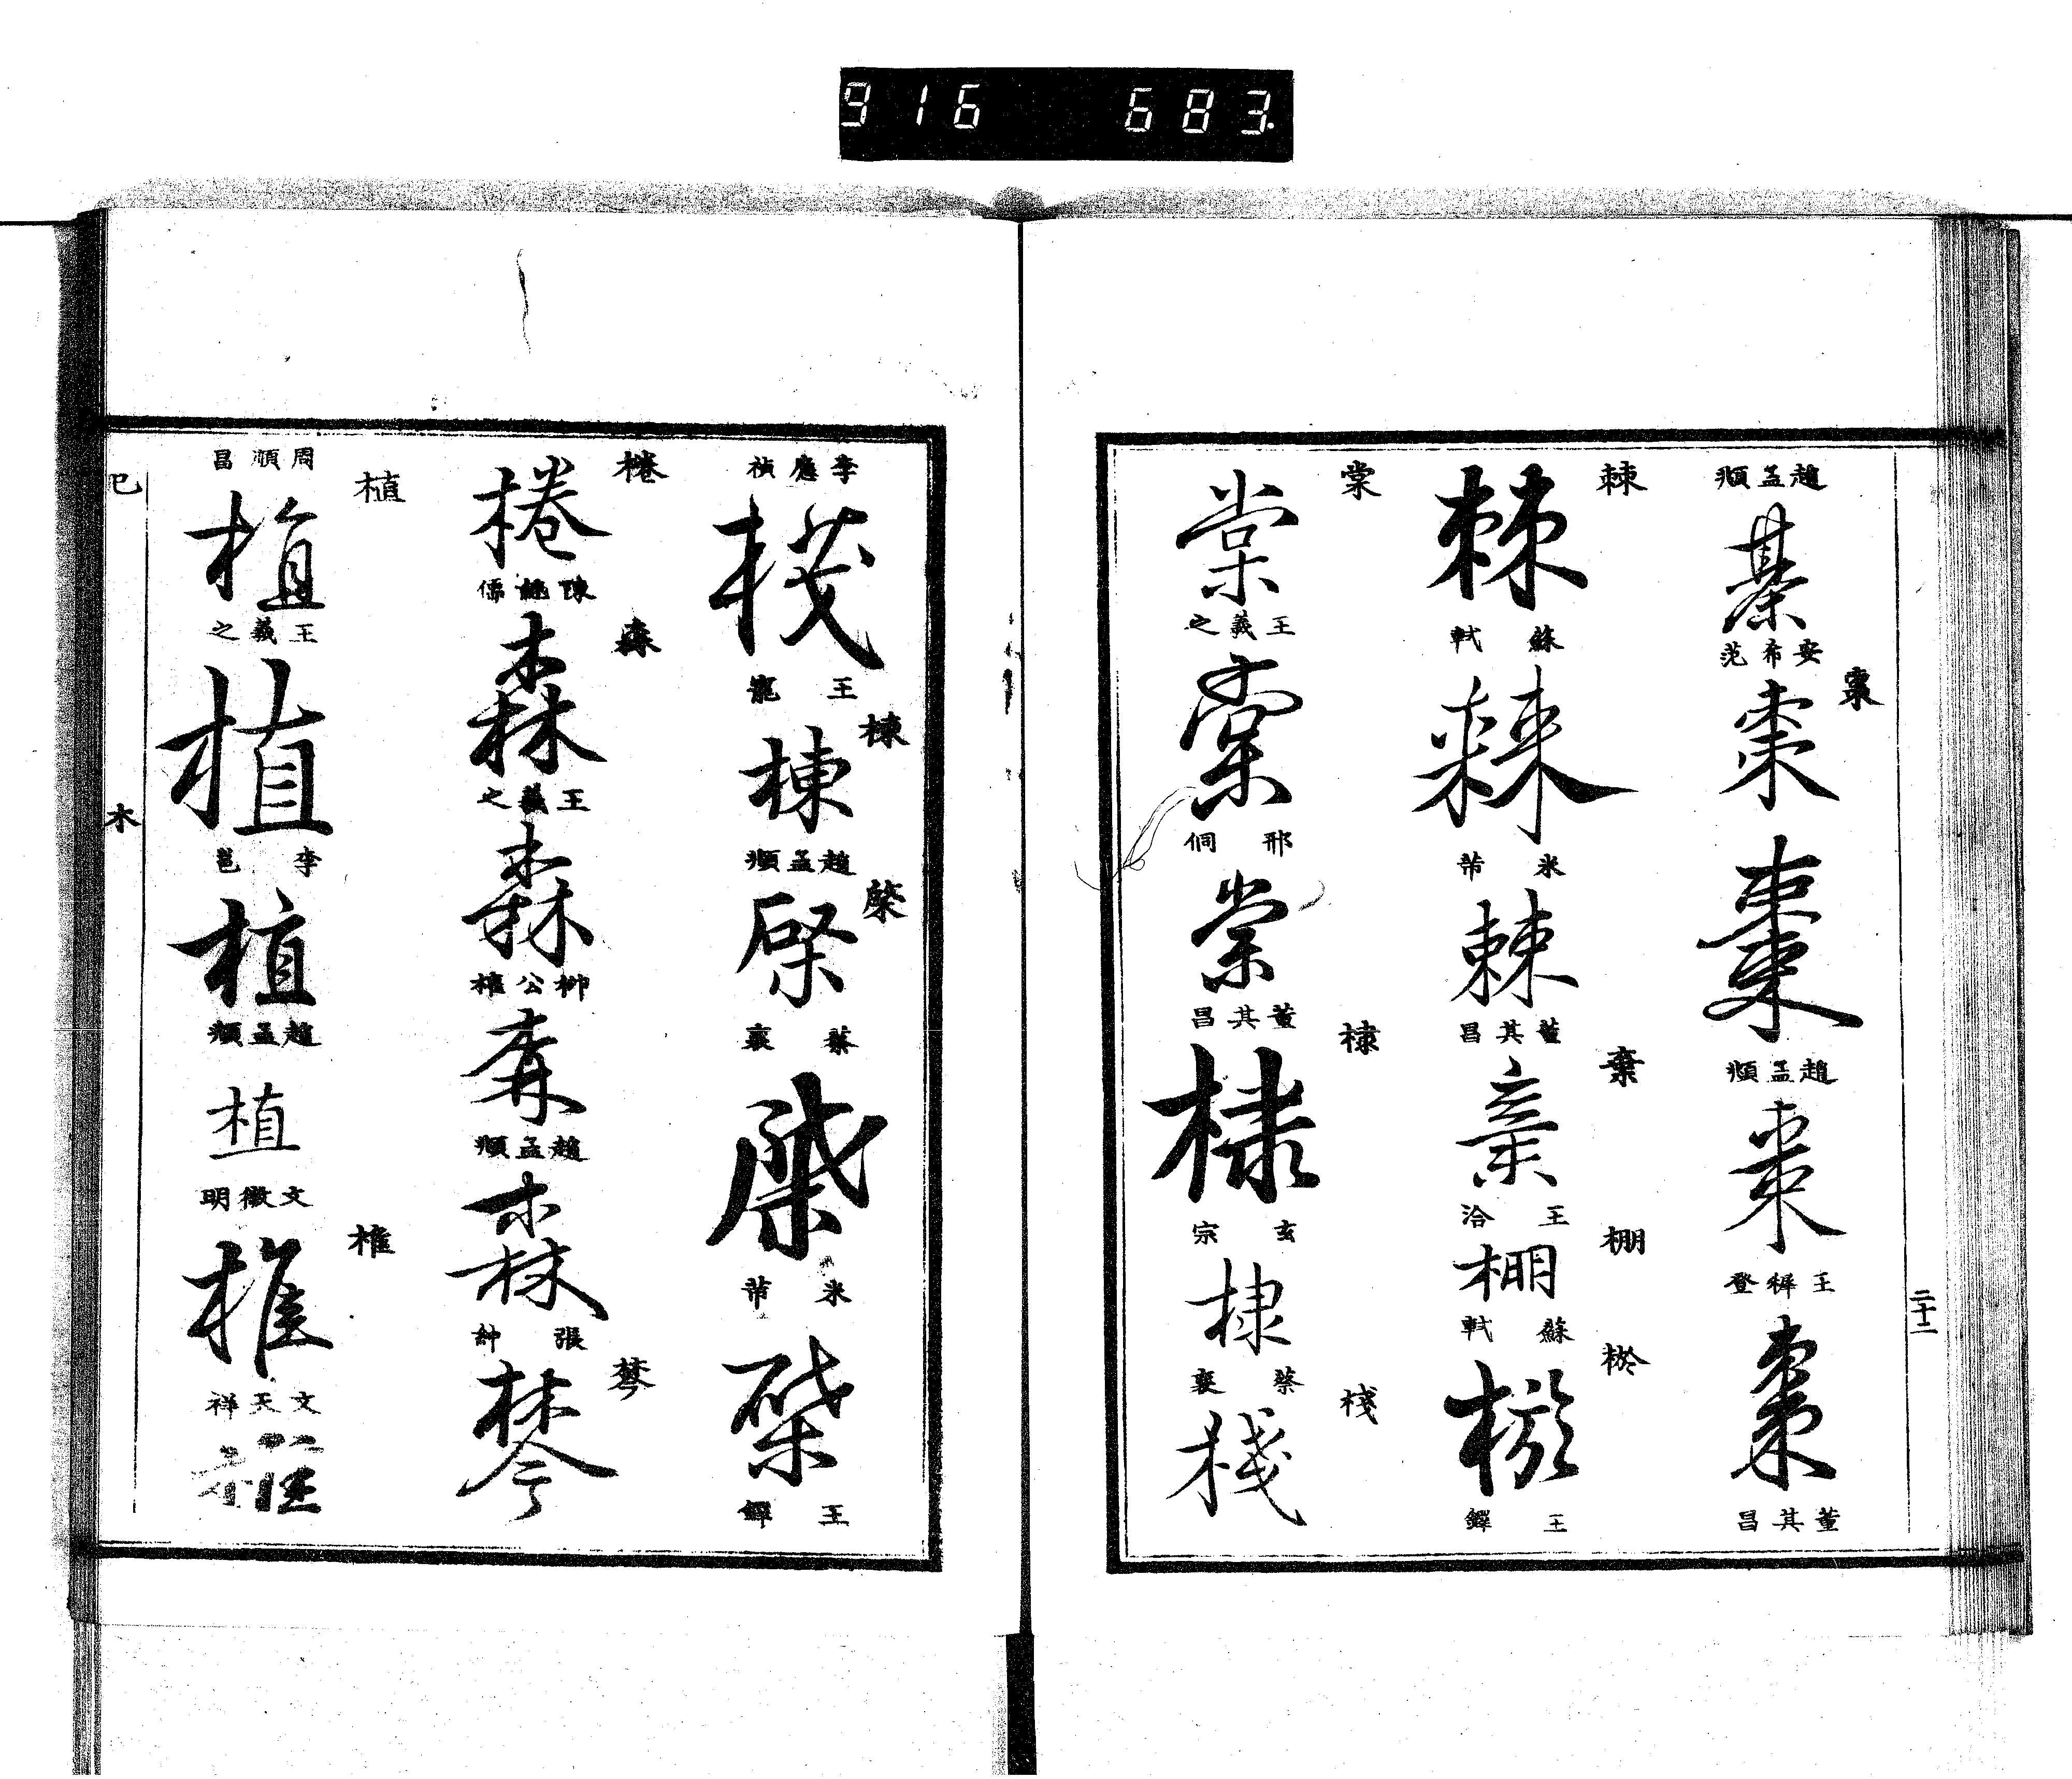 916 683
趙孟頫
棊
安希范
棗
棗
棗
趙孟頫
棗
王穉登
棗
董其昌
二十二
棘
棘
蘇軾
棘
米芾
棘
董其昌
棄
棄
王洽
棚
棚
蘇軾
棜
棜
王鐸
棠
棠
王羲之
棠
邢侗
棠
董其昌
棣
棣
玄宗
棣
蔡襄
棧
棧
李應禎
棧
王寵
棟
棟
趙孟頫
棨
棨
蔡襄
棨
米芾
棨
王鐸
棬
棬
陳繼儒
森
森
王羲之
森
柳公權
森
趙孟頫
森
張紳
棽
棽
周順昌
植
植
王羲之
植
李邕
植
趙孟頫
植
文徵明
椎
椎
文天祥
椎
巳
木